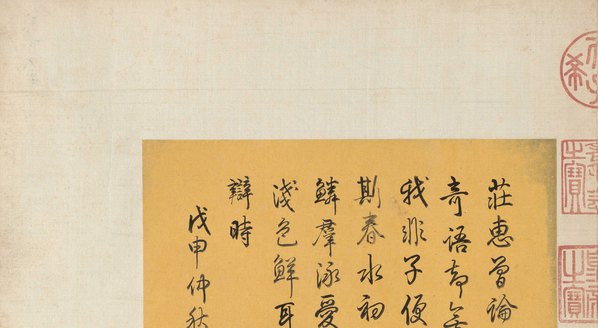 莊惠曾論
奇語却
我非子便
斯春水初
鱗羣泳愛
淺色鮮耳
辯時
戊申仲秋
之寶
之寶